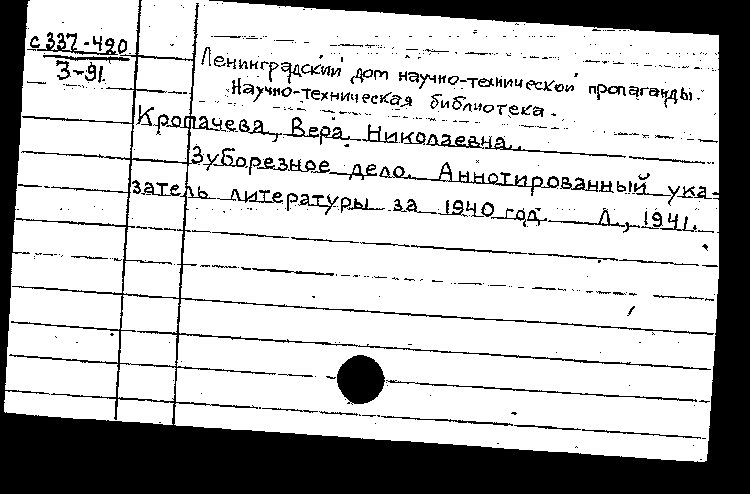 с 337-490
З-91
Ленинградский дом научно-технической пропаганды.
Научно-техническая библиотека.
Кропачева, Вера Николаевна.
Зуборезное дело. Аннотированный ука-
затель литературы за 1940 год. Л., 1941.